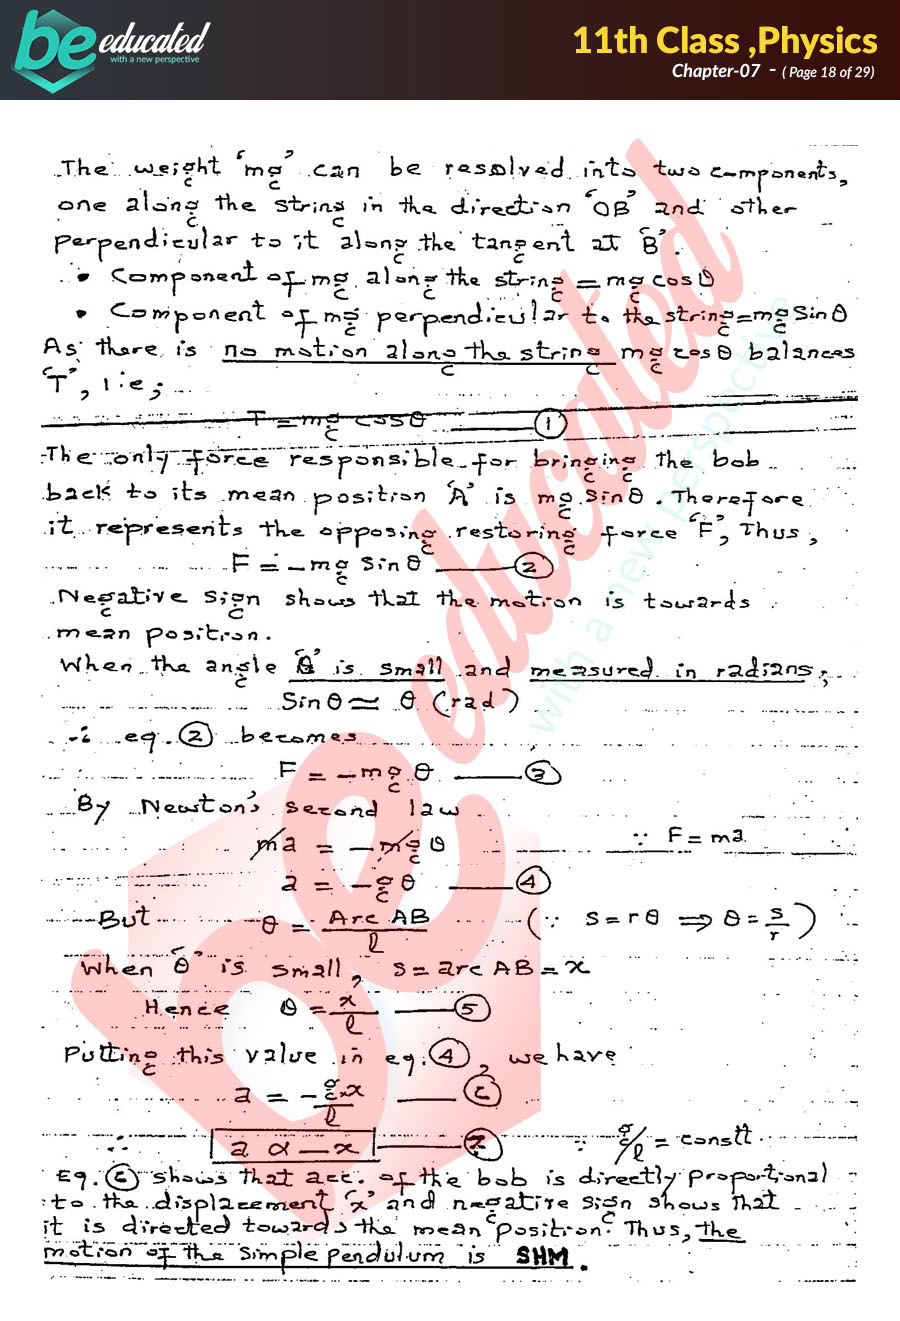 be educated
with a new perspective
11th Class ,Physics
Chapter-07 - ( Page 18 of 29)
The weight ‘mg’ can be resolved into two components,
one along the string in the direction ‘OB’ and other
perpendicular to it along the tangent at ‘B’.
• Component of mg along the string = mg cosθ
• Component of mg perpendicular to the string = mg Sinθ
As there is no motion along the string mg cosθ balances
‘T’, i.e;
T = mg cosθ ——— ①
The only force responsible for bringing the bob
back to its mean position ‘A’ is mg Sinθ. Therefore
it represents the opposing restoring force ‘F’, Thus,
F = -mg Sinθ ——— ②
Negative Sign shows that the motion is towards
mean position.
When the angle ‘θ’ is small and measured in radians;
Sinθ ≃ θ (rad)
∴ eq. ② becomes
F = -mg θ ——— ③
By Newton's second law
ma = -mgθ ∵ F = ma
a = -gθ ——— ④
But θ = Arc AB / l (∵ S = rθ ⇒ θ = s/r)
When ‘θ’ is small, s = arc AB = x
Hence θ = x/l ——— ⑤
Putting this value in eq. ④, we have
a = -g.x/l ——— ⑥
∴ a α -x ——— ⑦ ∵ g/l = constt.
Eq. ⑥ shows that acc. of the bob is directly proportional
to the displacement ‘x’ and negative sign shows that
it is directed towards the mean position. Thus, the
motion of the simple pendulum is SHM.
be educated
with a new perspective